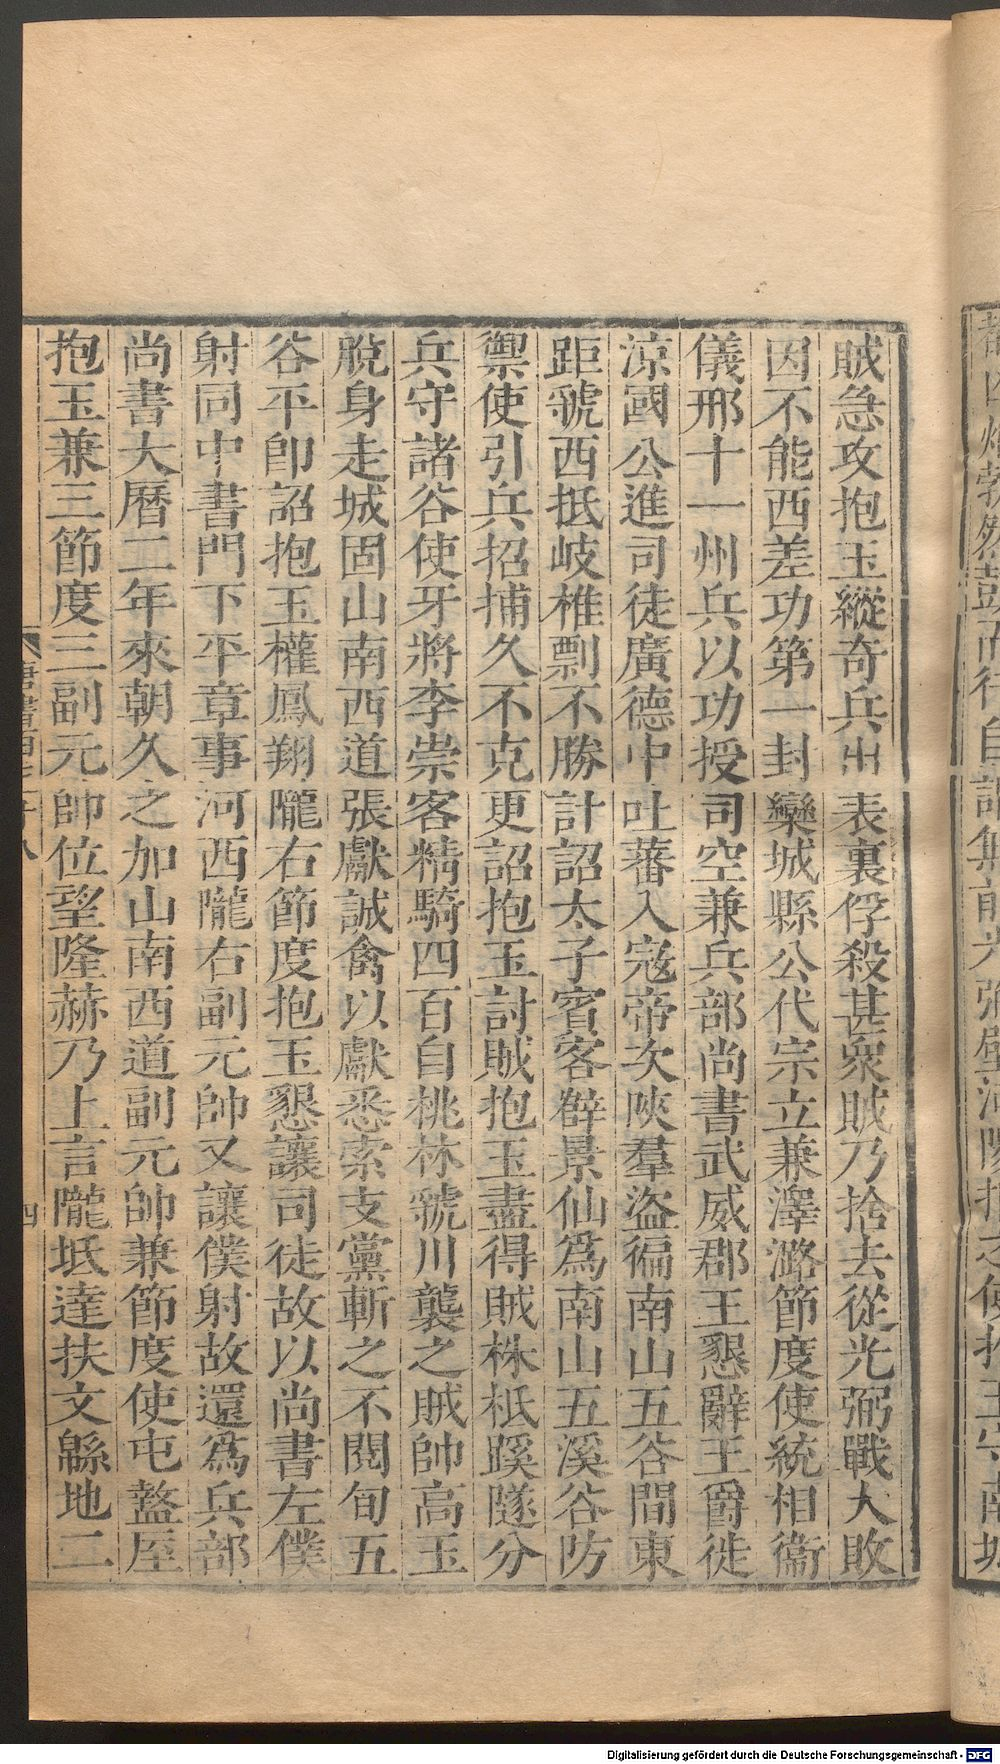 賊急攻抱玉縱奇兵出表裏俘殺甚衆賊乃捨去從光弼戰大敗
因不能西差功第一封欒城縣公代宗立兼澤潞節度使統相衞
儀邢十一州兵以功授司空兼兵部尚書武威郡王懇辭王爵徙
涼國公進司徒廣德中吐蕃入寇帝次陝羣盜徧南山五谷間東
距虢西抵岐椎剽不勝計詔太子賓客薛景仙爲南山五溪谷防
禦使引兵招捕久不克更詔抱玉討賊抱玉盡得賊株柢蹊隧分
兵守諸谷使牙將李崇客精騎四百自桃林虢川襲之賊帥高玉
脫身走城固山南西道張獻誠禽以獻悉索支黨斬之不閱旬五
谷平卽詔抱玉權鳳翔隴右節度抱玉懇讓司徒故以尚書左僕
射同中書門下平章事河西隴右副元帥又讓僕射故還爲兵部
尚書大曆二年來朝久之加山南西道副元帥兼節度使屯盩厔
抱玉兼三節度三副元帥位望隆赫乃上言隴坻達扶文緜地二
四
Digitalisierung gefördert durch die Deutsche Forschungsgemeinschaft - DFG